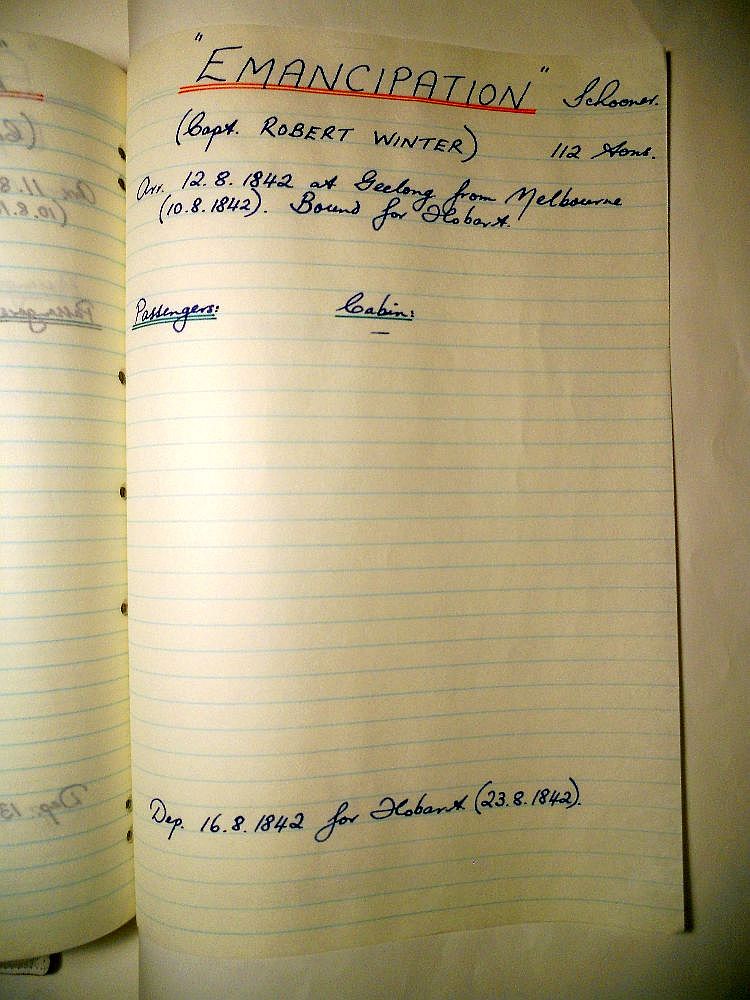 "EMANCIPATION" Schooner.
(Capt. ROBERT WINTER) 112 Tons.
Arr. 12.8.1842 at Geelong from Melbourne
(10.8.1842). Bound for Hobart.
Passengers: Cabin:
—
Dep. 16.8.1842 for Hobart (23.8.1842).